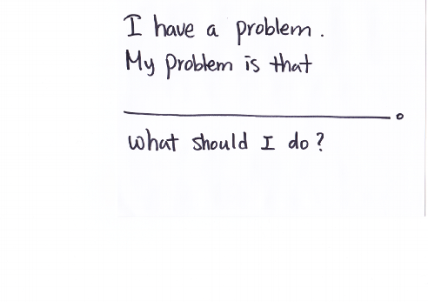 I have a problem.
My problem is that
____________________.
what should I do?